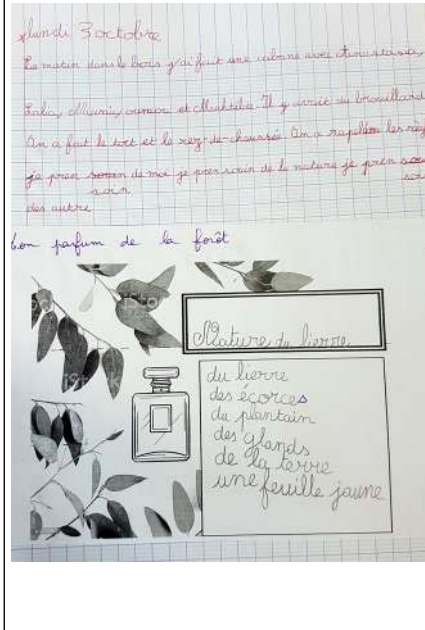 lundi 3 octobre
Ce matin dans le bois j'ai fait une cabane avec Anastasia,
et Mishtiba. Il y avait du brouillard
On a fait le toit et le rez-de-chaussée. On a rapelém les règ
je pren soin de moi je pren soin de la nature je pren
soin
des autre
bon parfum de la forêt
Nature du lierre
du lierre
des écorces
du plantain
des glands
de la terre
une feuille jaune